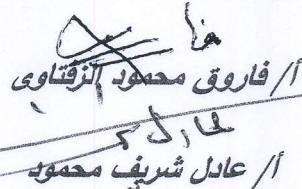 أ/ فاروق محمود الزفتاوى
أ/ عادل شريف محمود